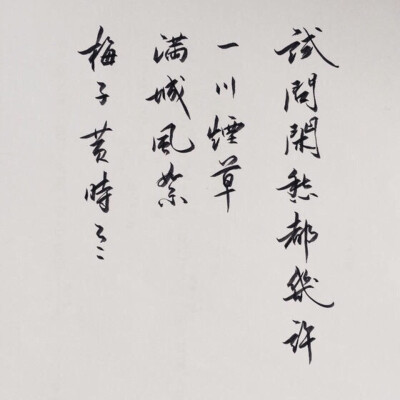 試問閑愁都幾許
一川煙草
滿城風絮
梅子黄時雨